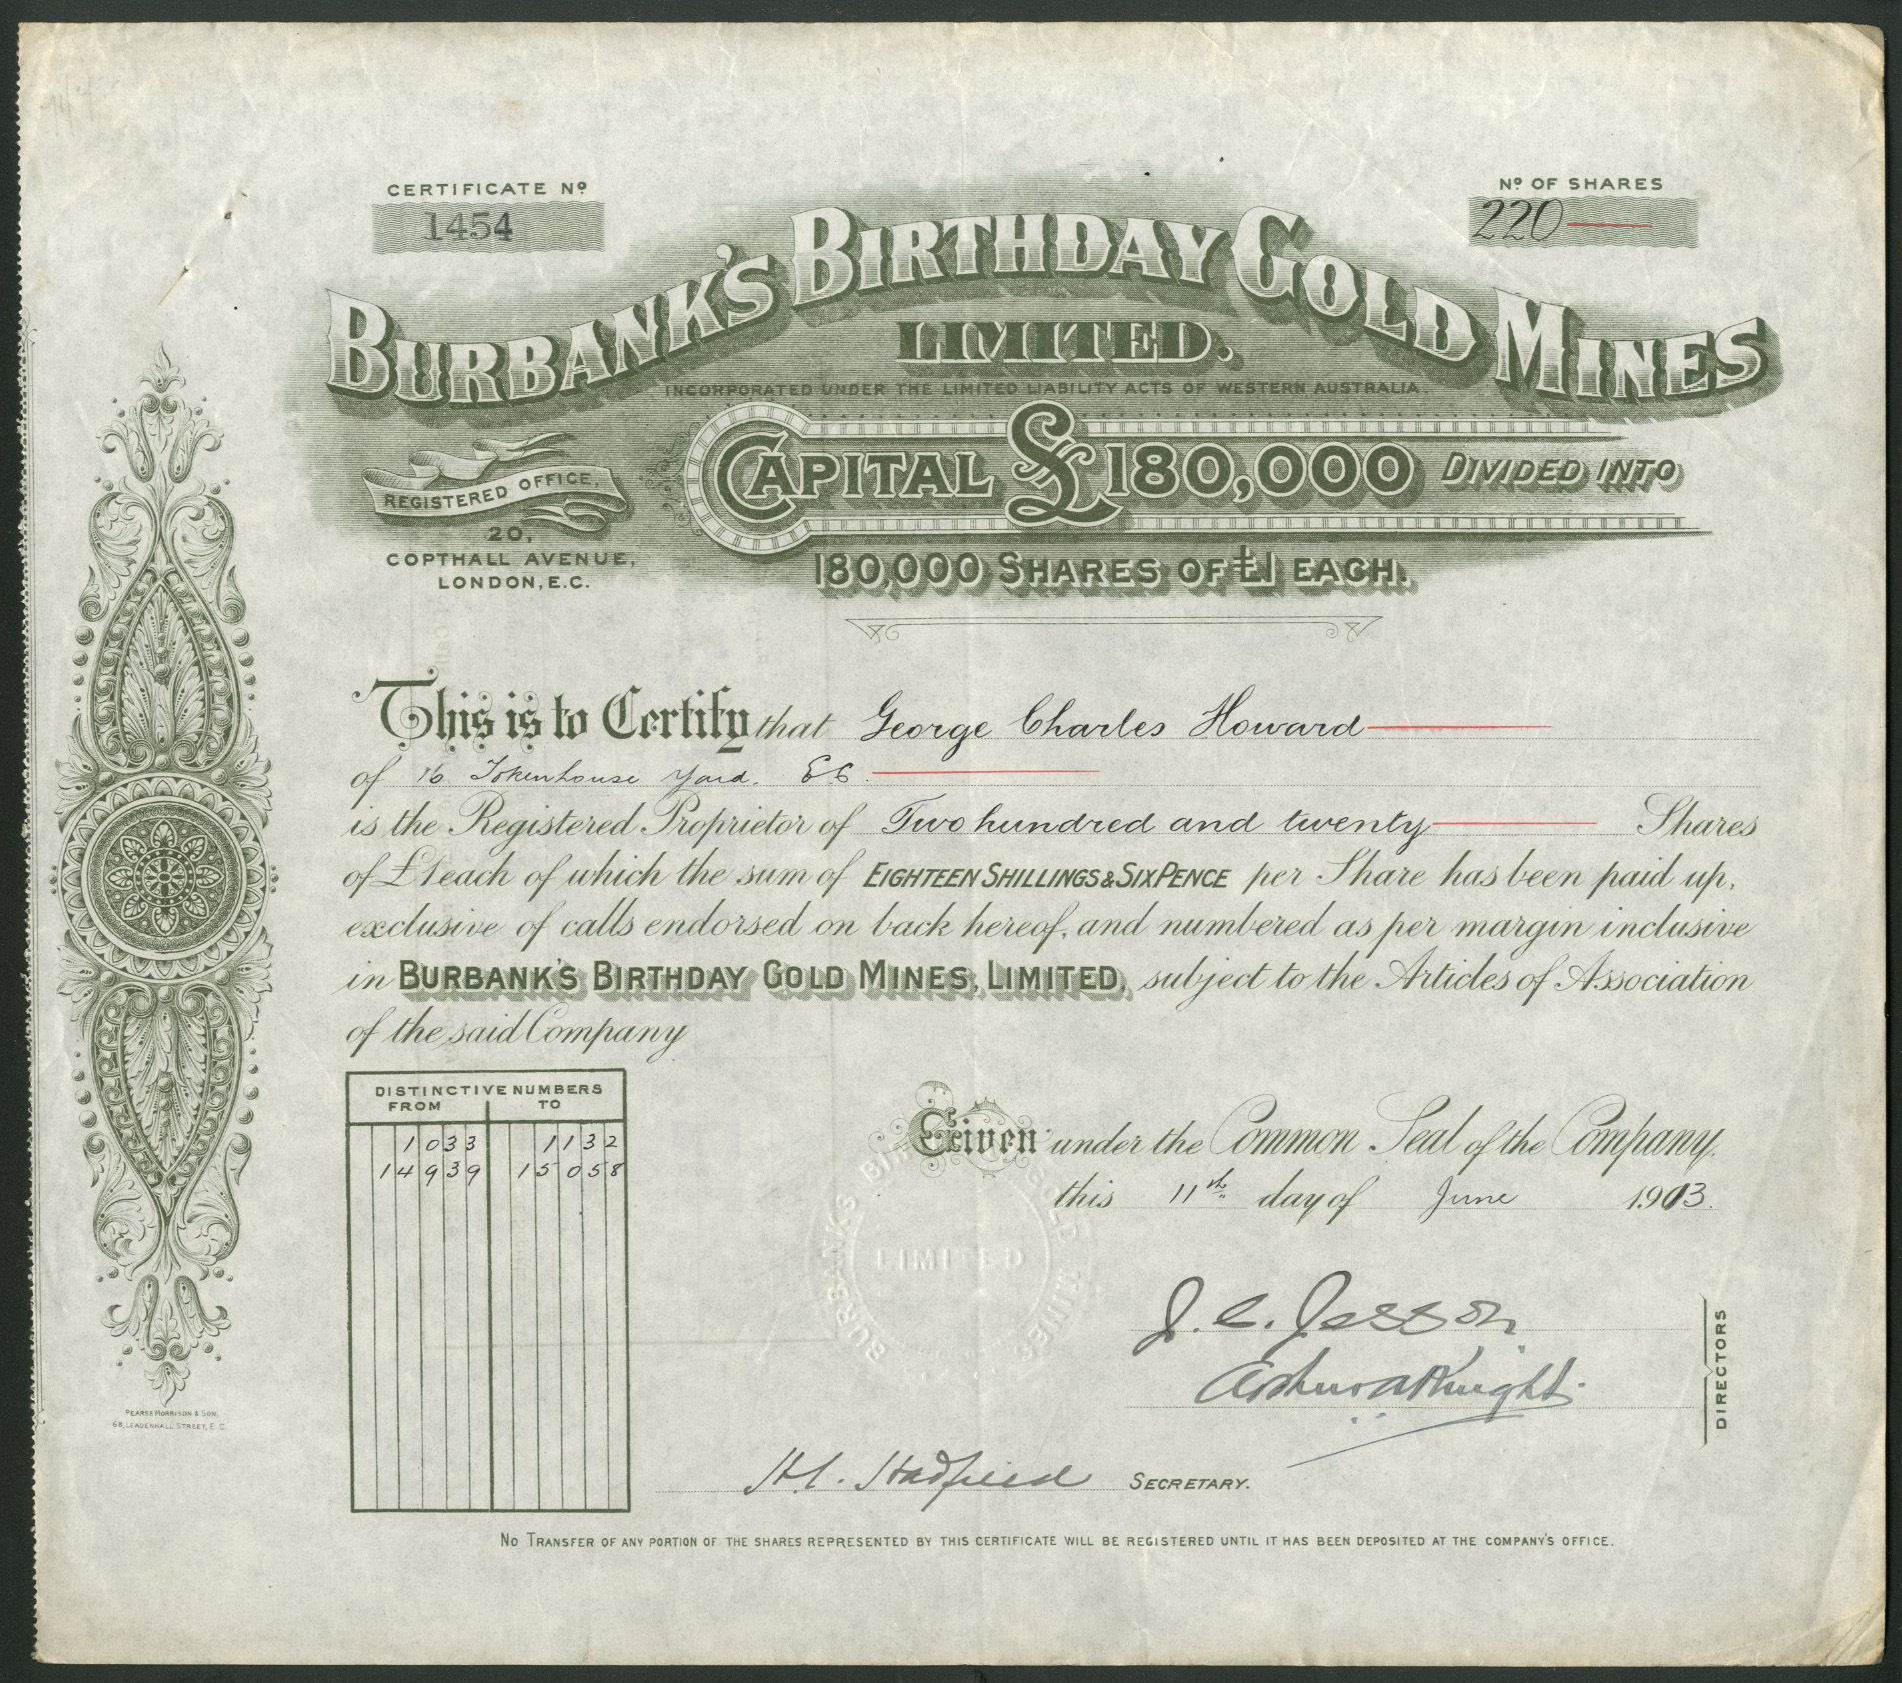 CERTIFICATE Nº
1454
Nº OF SHARES
220
BURBANK'S BIRTHDAY GOLD MINES
LIMITED.
INCORPORATED UNDER THE LIMITED LIABILITY ACTS OF WESTERN AUSTRALIA
CAPITAL £180,000 DIVIDED INTO
180,000 SHARES OF £1 EACH.
REGISTERED OFFICE,
20,
COPTHALL AVENUE,
LONDON, E.C.
This is to Certify that George Charles Howard
of 16 Tokenhouse Yard. EC.
is the Registered Proprietor of Two hundred and twenty Shares
of £1 each of which the sum of EIGHTEEN SHILLINGS & SIXPENCE per Share has been paid up,
exclusive of calls endorsed on back hereof, and numbered as per margin inclusive
in BURBANK'S BIRTHDAY GOLD MINES, LIMITED, subject to the Articles of Association
of the said Company
DISTINCTIVE NUMBERS
FROM TO
1033 1132
14939 15058
Given under the Common Seal of the Company.
this 11th day of June 1903.
BURBANKS BIRTHDAY GOLD MINES
LIMITED
J. C. Jesson
Arthur A Knight
DIRECTORS
H. L. Hadfield SECRETARY.
PEARSE MORRISON & SON,
68, LEADENHALL STREET, E.C.
NO TRANSFER OF ANY PORTION OF THE SHARES REPRESENTED BY THIS CERTIFICATE WILL BE REGISTERED UNTIL IT HAS BEEN DEPOSITED AT THE COMPANY'S OFFICE.